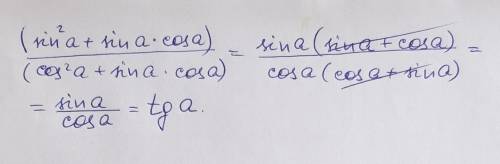 (sin²a + sin a · cosa) / (cos²a + sin a · cosa) = sin a (sin a + cosa) / cosa (cosa + sin a) =
= sin a / cosa = tg a.